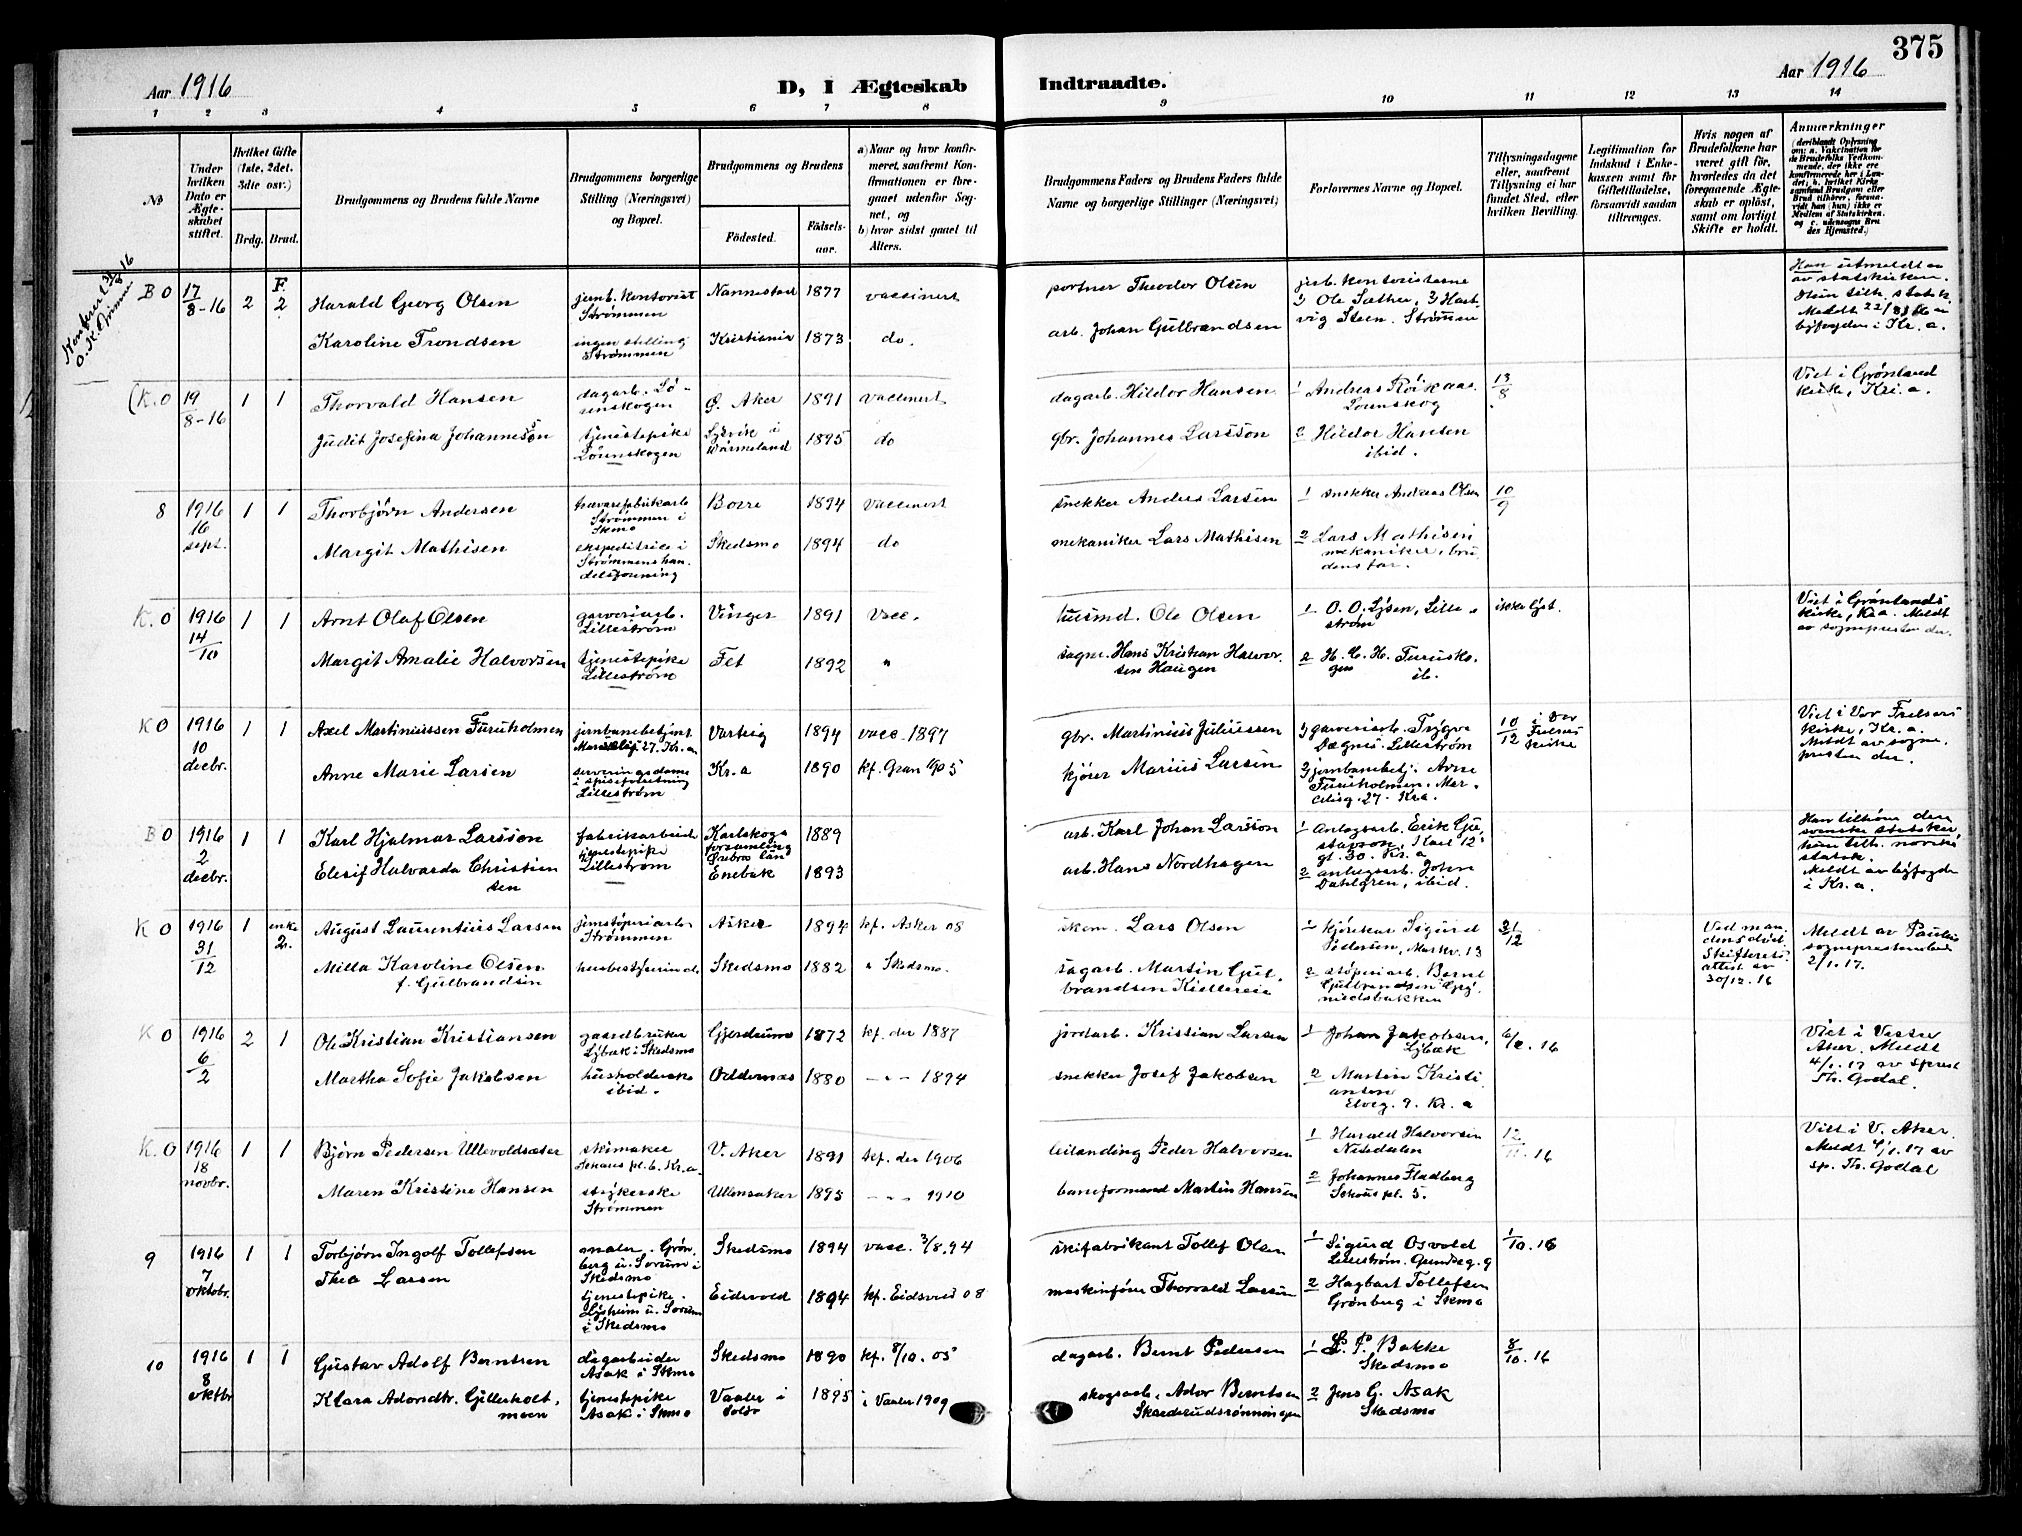 375
Aar 1916
D, I Ægteskab
Indtraadte.
Aar 1916
1 2 3 4 5 6 7 8 9 10 11 12 13 14
No
Under hvilken Dato er Ægteskabet stiftet.
Hvilket Gifte (1ste, 2det, 3die osv.)
Brdg. Brud.
Brudgommens og Brudens fulde Navne
Brudgommens borgerlige Stilling (Næringsvei) og Bopæl.
Brudgommens og Brudens
Födested.
Födselsaar.
a) Naar og hvor konfirmeret, saafremt Konfirmationen er foregaaet udenfor Sognet, og
b) hvor sidst gaaet til Alters.
Brudgommens Faders og Brudens Faders fulde Navne og borgerlige Stillinger (Næringsvei)
Forlovernes Navne og Bopæl.
Tillysningsdagene eller, saafremt Tillysning ei har fundet Sted, efter hvilken Bevilling.
Legitimation for Indskud i Enkekassen samt for Giftetilladelse, forsaavidt saadan tiltrænges.
Hvis nogen af Brudefolkene har været gift för, hvorledes da det foregaaende Ægteskab er oplöst, samt om lovligt Skifte er holdt.
Anmærkninger
(deriblandt Oplysning om: a. Vakcination for de Brudefolks Vedkommende, der ikke ere konfirmerede her i Landet; b. hvilket Kirkesamfund Brudgom eller Brud tilhörer, forsaavidt han (hun) ikke er Medlem af Statskirken, og c. udensogns Brudes Hjemsted.)
B O 17/8-16 2 F. 2 Harald Georg Olsen jernb. kontorist Strømmen Nannestad 1877 vaccinert portner Theodor Olsen jerb. kontoristerne 1) Ole Sæther, 2) Hartvig Steen. Strømmen Han utmeldt av statskirken.
Karoline Trondsen ingen stilling Strømmen Kristiania 1873 do. arb. Johan Gulbrandsen
byfogden i Kr.a.
(K. O 19/8-16 1 1 Thorvald Hansen dagarb. Lørenskogen Ø. Aker 1891 vaccinert dagarb. Hildor Hansen 1 Andreas Lørenskog 13/8 Viet i Grønland kirke, Kr.a.
Judit Josefina Johannesson tjenestepike Lørenskogen i Wärmeland 1895 do gbr. Johannes Larsson 2 Hildor Hansen ibid.
8 1916 16 sept. 1 1 Thorbjørn Andersen Strømmen i Skmo Borre 1894 vaccinert snekker Anders Larsen 1 snekker Andreas Olsen 10/9
Margit Mathisen ekspeditrice i Strømmens handelsforening Skedsmo 1894 do mekaniker Lars Mathisen 2 Lars Mathisen mekaniker, brudens far.
K. O 1916 14/10 1 1 Arnt Olaf Olsen garveriarb. Lillestrøm Vinger 1891 Vacc. husmd. Ole Olsen 1 O. O. Lysen, Lillestrøm ikke lyst. Viet i Grønlands kirke, Kr.a. Meldt av sognepresten der.
Margit Amalie Halvorsen tjenestepike Lillestrøm Fet 1892 " sagm. Hans Kristian Halvorsen Haugen 2 H. C. H. Furuskogen ib.
K O 1916 10 decbr. 1 1 Axel Martiniussen Furuholmen jernbanebetjent 27. Kr.a. Varteig 1894 vacc. 1897 gbr. Martinius Juliussen 1) garveriarb. Trygve Lillestrøm 10/12 i Vor Frelsers kirke Viet i Vor Frelsers kirke, Kr.a. Meldt av sognepresten der.
Anne Marie Larsen serveringsdame i spiseforretning Lillestrøm Kr.a 1890 kf. Gran kjører Marius Larsen 2) jernbanebetj. Arne Furuholmen. 27. Kr.a.
B O 1916 2 decbr. 1 1 Karl Hjalmar Larsson fabrikarbeid Karlskoga forsamling Örebro län 1889 arb. Karl Johan Larsson 1 Anlægsarb. Erik Gustavson, Karl 12 gt. 30. Kr.a Han tilhører den svenske statsker, hun tilh. norske statsk. Meldt av byfogden i Kr.a.
Elesif Halvarda Christiansen tjenestepike Lillestrøm Enebak 1893 arb. Hans Nordhagen 2 anlægsarb. John Dahlgren, ibid.
K O 1916 31/12 1 enke 2. August Laurentius Larsen jernstøperiarb. Strømmen Asker 1894 kf. Asker 08 skom. Lars Olsen 1 kjørekar Sigurd Pedersen, Markv. 13 31/12 Ved mandens død. Skifteretsattest av 30/12.16 Meldt av Paulus sogneprestembede 2/1.17.
Milla Karoline Olsen f. Gulbrandsen husbestyrerinde Skedsmo 1882 " Skedsmo. sagarb. Martin Gulbrandsen 2 støperiarb. Bernt Gulbrandsen
K O 1916 6/2 2 1 Ole Kristian Kristiansen gaardbruker Lybæk i Skedsmo Gjerdrum 1872 kf. der 1887 jordarb. Kristian Larsen 1 Johan Jakobsen, Lybæk 6/2.16 Viet i Vestre Aker. Meldt 4/1.17 av sprest Th. Godal.
Martha Sofie Jakobsen husholderske ibid. Oddernes 1880 – " – 1894 snekker Josef Jakobsen 2 Martin Kristiansen Elveg. 9. Kr.a
K. O 1916 18 novbr. 1 1 Bjørn Pedersen Ullevoldsæter skimaker Skaus pl. 6. Kr.a. V. Aker 1891 kf. der 1906 leilænding Peder Halvorsen 1 Harald Halvorsen Nitedalen 12/11.16 Viet i V. Aker. Meldt 4/1.17 av sp. Th. Godal
Maren Kristine Hansen strykerske Strømmen Ullensaker 1895 – " – 1910 baneformand Martin Hansen 2 Johannes Fladberg Skous pl. 5.
9 1916 7 oktobr. 1 1 Torbjørn Ingolf Tollefsen maler. Grønberg u. Sørum i Skedsmo Skedsmo 1894 vacc. 3/8.94 skifabrikant Tollef Olsen 1 Sigurd Osvold Lillestrøm. 1/10.16
Thea Larsen tjenestepike. i Skedsmo Eidsvold 1894 kf. Eidsvold 08 maskinfører Thorvald Larsen 2 Hagbart Tollefsen Grønberg i Skmo
10 1916 8 oktbr 1 1 Gustav Adolf Berntsen dagarbeider Asak i Skmo Skedsmo 1890 kf. 8/10.05 dagarb. Bernt Pedersen 1 L. P. Bakke Skedsmo 8/10.16
Klara Adorsdtr. Gillerholtmoen tjenestepike Asak i Skmo Vaaler i Solør 1895 i Vaaler 1909 skogsarb. Ador Berntsen 2 Jens G. Asak Skedsmo